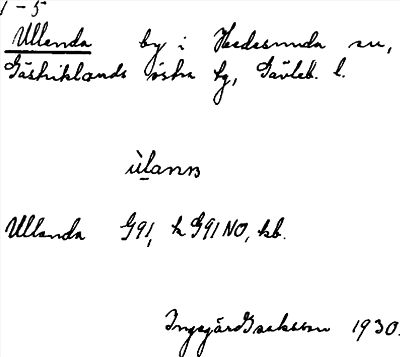 1-5
Ullanda by i Hedesunda sn,
Gästriklands östra tg, Gävleb. l.
ùlanɴ
Ullanda G91, k G91 NO, kb.
Ingegärd Isaksson 1930.